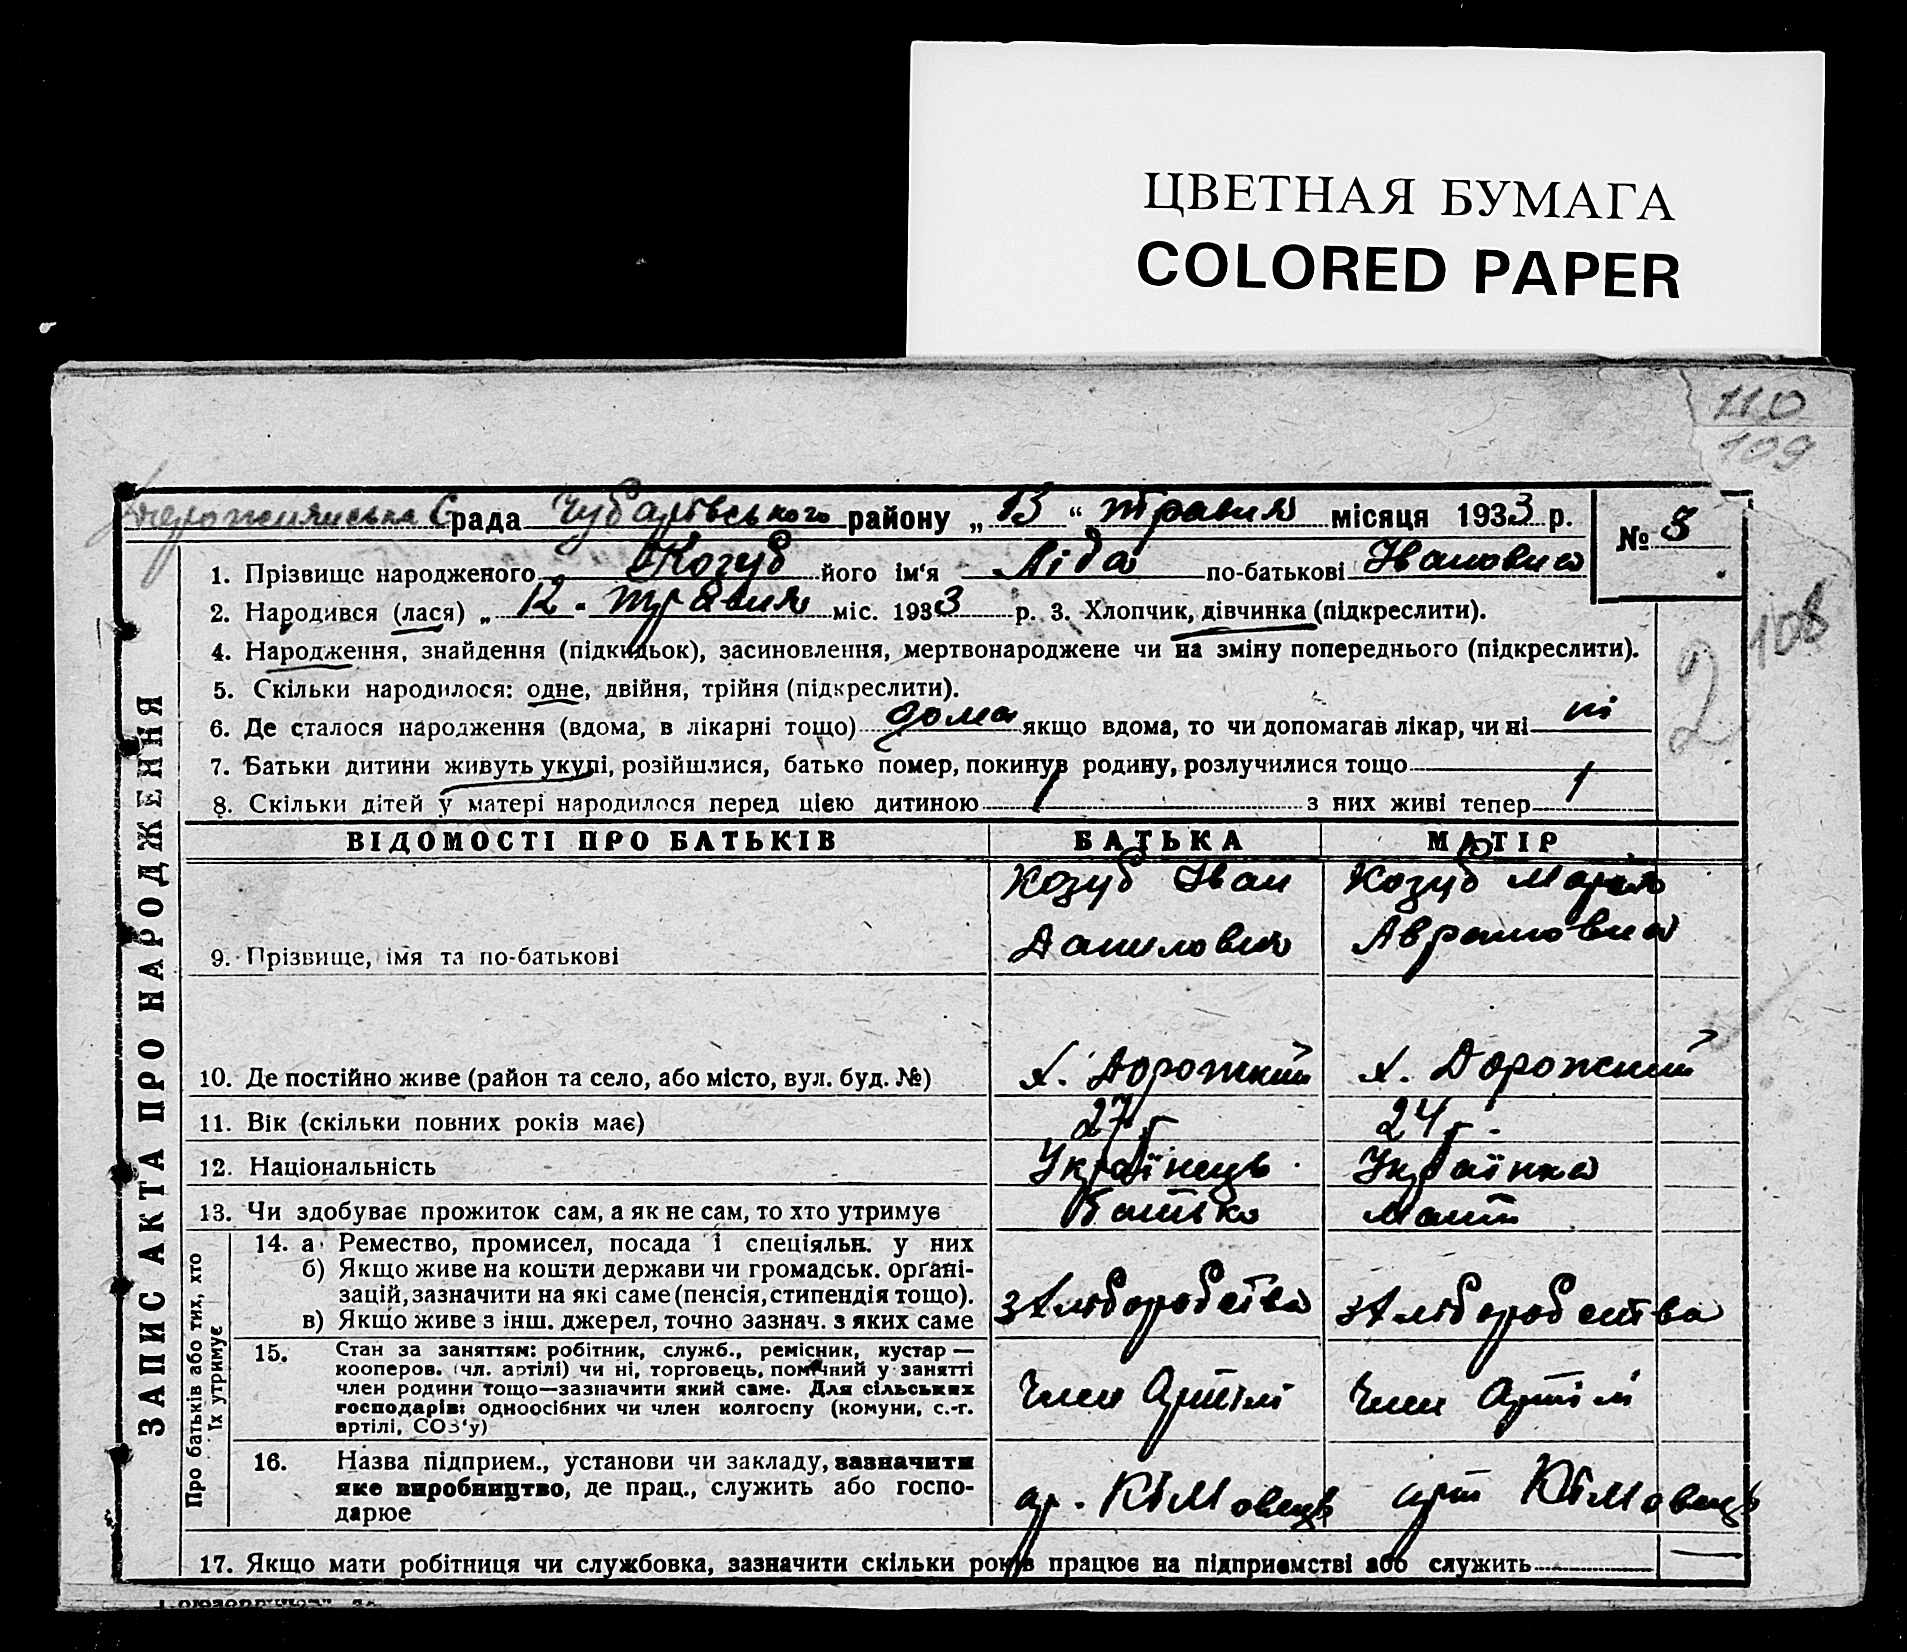 ЦВЕТНАЯ БУМАГА
COLORED PAPER
110
109
108
2
рада Чубарівського району „ 13 “ травня місяця 1933 р.
№ 8
ЗАПИС АКТА ПРО НАРОДЖЕННЯ
1. Прізвище народженого Козуб його ім‘я Ліда по-батькові Івановна
2. Народився (лася) „ 12 . травня міс. 1933 р. 3. Хлопчик, дівчинка (підкреслити).
4. Народження, знайдення (підкидьок), засиновлення, мертвонароджене чи на зміну попереднього (підкреслити).
5. Скільки народилося: одне, двійня, трійня (підкреслити).
6. Де сталося народження (вдома, в лікарні тощо) дома якщо вдома, то чи допомагав лікар, чи ні ні
7. Батьки дитини живуть укупі, розійшлися, батько помер, покинув родину, розлучилися тощо
8. Скільки дітей у матері народилося перед цією дитиною 1 з них живі тепер 1
ВІДОМОСТІ ПРО БАТЬКІВ БАТЬКА МАТІР
9. Прізвище, імя та по-батькові
Козуб Іван Козуб Мария
Данилович Аврамовна
10. Де постійно живе (район та село, або місто, вул. буд. №) х. Дорожний х. Дорожний
11. Вік (скільки повних років має) 27 г. 24 г.
12. Національність Українець Українка
13. Чи здобуває прожиток сам, а як не сам, то хто утримує батько мати
Про батьків або тих, хто
їх утримує
14. а Ремество, промисел, посада і спеціяльн. у них
б) Якщо живе на кошти держави чи громадськ. органі-
зацій, зазначити на які саме (пенсія, стипендія тощо).
в) Якщо живе з інш. джерел, точно зазнач. з яких саме
15. Стан за заняттям: робітник, служб., ремісник, кустар —
кооперов. (чл. артілі) чи ні, торговець, помічний у занятті
член родини тощо—зазначити який саме. Для сільських
господарів: одноосібних чи член колгоспу (комуни, с.-г.
артілі, СОЗ‘у)
Член Артілі Член Артілі
16. Назва підприєм., установи чи закладу, зазначити
яке виробництво, де прац., служить або госпо-
дарюе
ар. Кімовець арт Кімовець
17. Якщо мати робітниця чи службовка, зазначити скільки років працює на підприємстві або служить